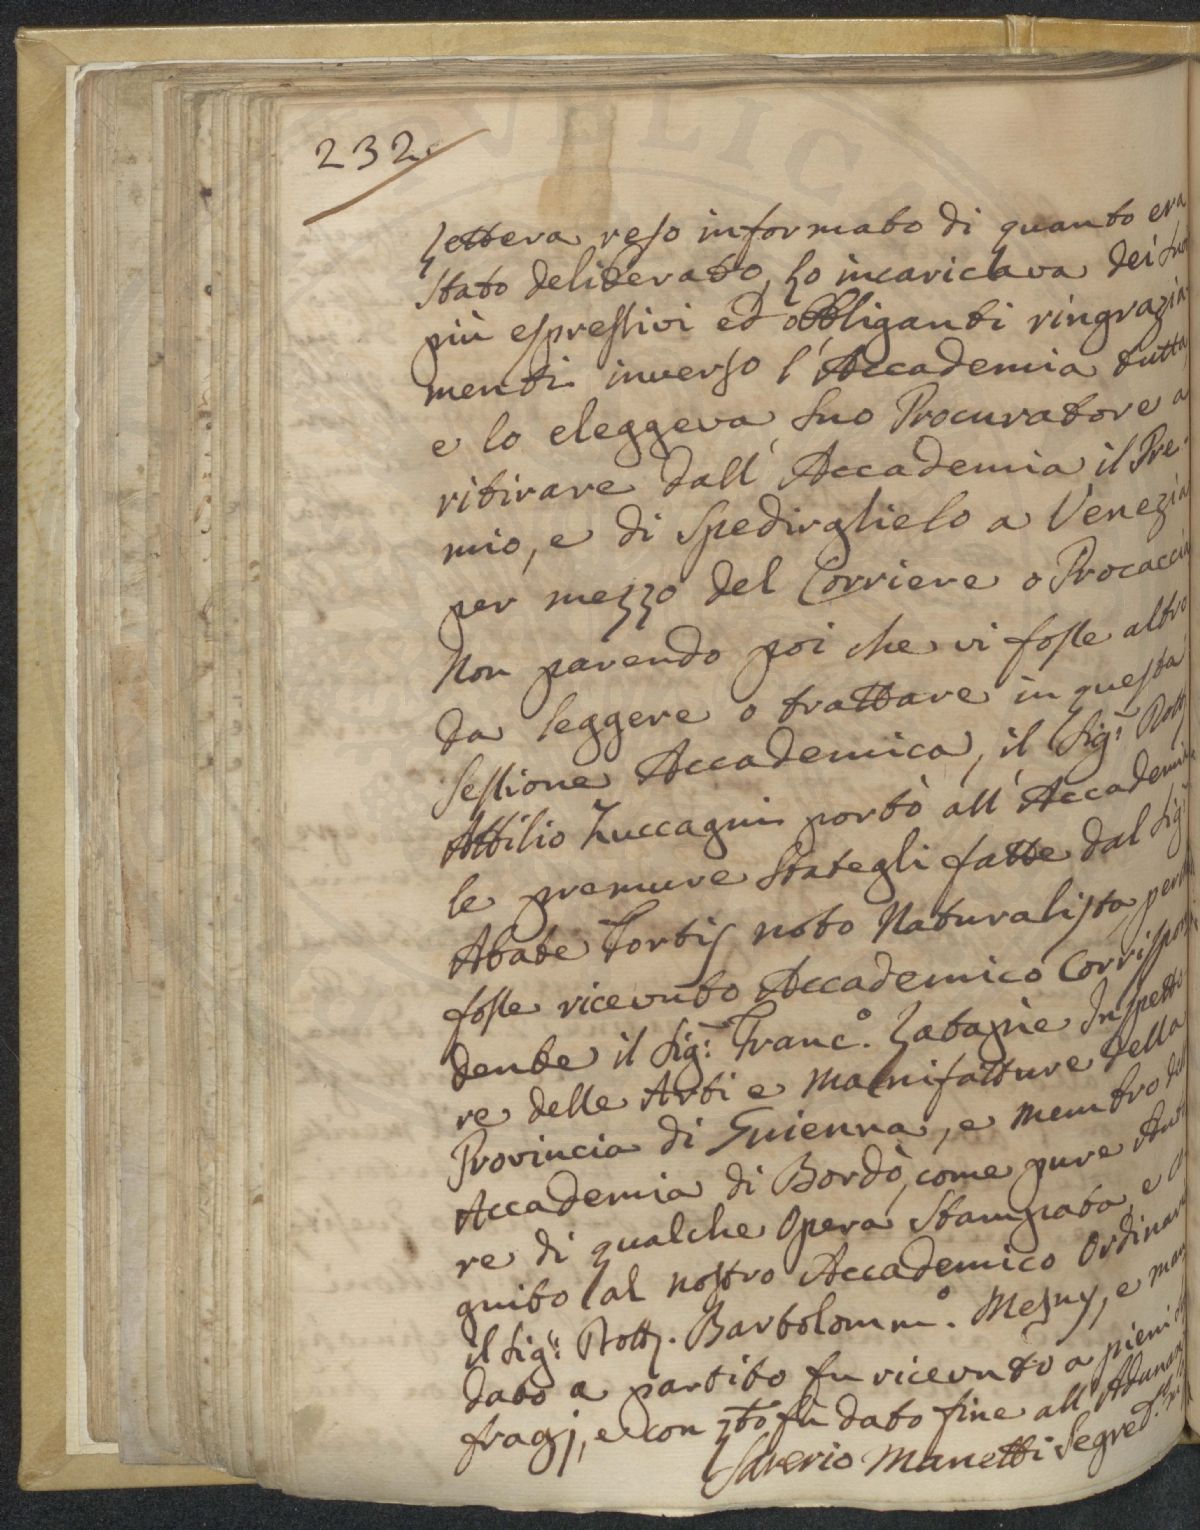 232.
Lettera reso informato di quanto era
stato deliberato, lo incaricava dei suoi
più espressivi ed obbliganti ringrazia-
menti inverso l'Accademia tutta,
e lo eleggeva suo Procuratore a
ritirare dall'Accademia il Pre-
mio, e di spedirglielo a Venezia
per mezzo del Corriere o Procaccia
Non parendo poi che vi fosse altro
da leggere o trattare in questa
sessione Accademica, il Sig.r Dott.
Attilio Zuccagni portò all'Accademia
le premure stategli fatte dal Sig.r
Abate Fortis noto Naturalista perchè
fosse ricevuto Accademico Corrispon
dente il Sig.r Franc.o Latapie Inspetto
re delle Arti e Manifatture della
Provincia di Guienna, e membro dell
Accademia di Bordò, come pure Auto
re di qualche Opera stampata, e
gnito al nostro Accademico Ordinario
il Sig.r Dott. Bartolomm.o Mesny, e man
dato a partito fu ricevuto a pieni
fragj, e con qto fu dato fine all'Adunan
Saverio Manetti Segret.